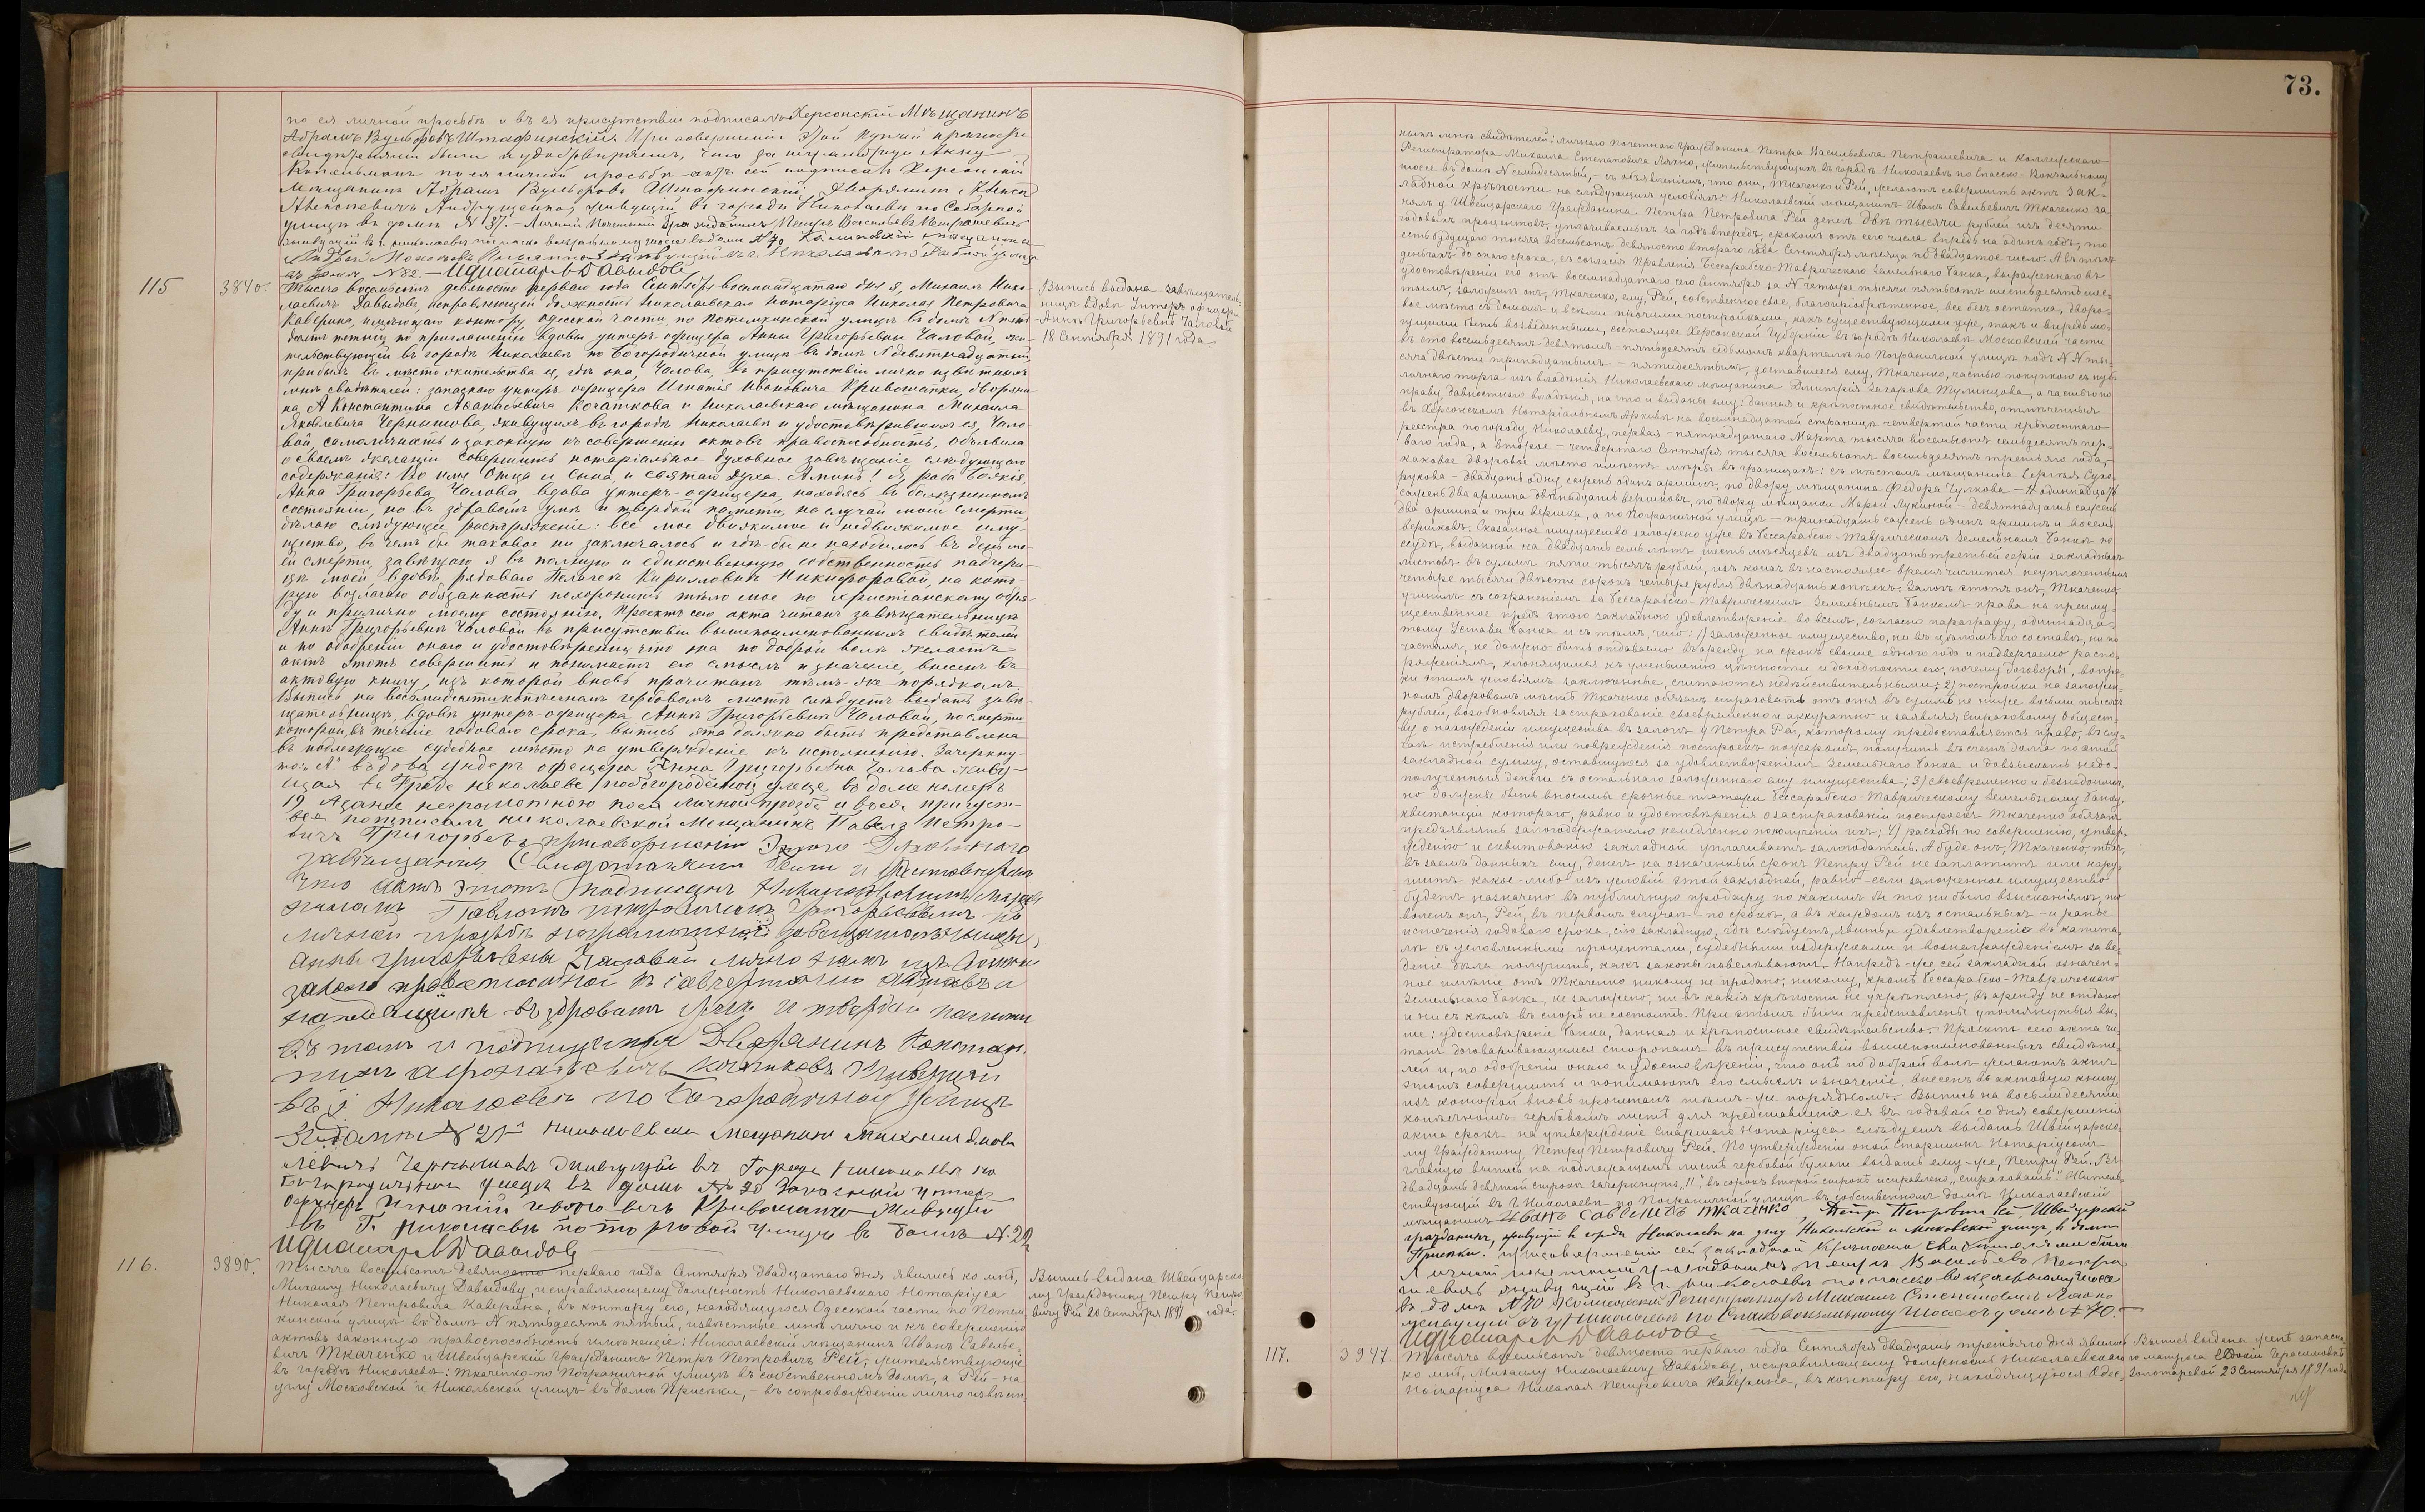 по ея личной просьбѣ и въ ея присутствіи подписалъ Херсонскій Мѣщанинъ
Абрамъ Вульфовъ Штафинскій. При совершеніи этой купчей крѣпости
свидѣтелями были и удостовѣряемъ, что за неграмотную Анну
по ея личной просьбѣ актъ сей подписалъ Херсонскій
Мѣщанинъ Абрамъ Вульфовъ Штафинскій Дворянинъ
живущій въ городѣ Николаевѣ по Соборной
улицѣ въ домѣ N 37. – Личный Почетный Гражданинъ Петръ Васильевъ Петрашевичъ
живущій въ г. Николаевѣ по Спасско вокзальному шоссе въ домѣ N 70
въ домѣ N 82. – И д нотар. М Давыдовъ
115
3840.
Тысяча восемьсотъ девяносто перваго года Сентября восемнадцатаго дня я, Михаилъ Нико-
лаевичъ Давыдовъ, исправляющій должность Николаевскаго Нотаріуса Николая Петровича
Каверина, имѣющаго контору Одесской части, по Потемкинской улицѣ въ домѣ N пять-
десятъ пятый, по приглашенію вдовы унтеръ-офицера Анны Григорьевны Чаловой, жи-
тельствующей въ городѣ Николаевѣ по Богородичной улицѣ въ домѣ N девятнадцатый,
прибылъ въ мѣсто жительства ея, гдѣ она, Чалова, въ присутствіи лично извѣстныхъ
мнѣ свидѣтелей: запаснаго унтеръ-офицера Игнатія Ивановича Кривошапки, дворяни-
на А Константина Афанасьевича Косаткова и Николаевскаго мѣщанина Михаила
Яковлевича Чернышова, живущихъ въ городѣ Николаевѣ и удостовѣрившихъ ея, Чало-
вой, самоличность и законную къ совершенію актовъ правоспособность, объявила
о своемъ желаніи совершить нотаріальное духовное завѣщаніе слѣдующаго
содержанія: Во имя Отца и Сына и Святаго Духа. Аминь! Я, раба Божія,
Анна Григорьева Чалова, вдова унтеръ-офицера, находясь въ болѣзненномъ
состояніи, но въ здравомъ умѣ и твердой памяти, на случай моей смерти,
дѣлаю слѣдующее распоряженіе: все мое движимое и недвижимое иму-
щество, въ чемъ бы таковое ни заключалось и гдѣ-бы не находилось въ день мо-
ей смерти, завѣщаю я въ полную и единственную собственность падчери-
цѣ моей, вдовѣ рядоваго Пелагеѣ Кирилловнѣ Никифоровой, на кото-
рую возлагаю обязанность похоронить тѣло мое по христіанскому обря-
ду и прилично моему состоянію. Проектъ сего акта читанъ завѣщательницѣ
Аннѣ Григорьевнѣ Чаловой въ присутствіи вышепоименованныхъ свидѣтелей
и по одобреніи онаго и удостовѣреніи, что она по доброй волѣ желаетъ
актъ этотъ совершить и понимаетъ его смыслъ и значеніе, внесенъ въ
актовую книгу, изъ которой вновь прочитанъ тѣмъ-же порядкомъ.
Выпись на восьмидесятикопѣечномъ гербовомъ листѣ слѣдуетъ выдать завѣ-
щательницѣ, вдовѣ унтеръ-офицера Аннѣ Григорьевнѣ Чаловой, по смерти
которой, въ теченіе годоваго срока, выпись эта должна быть представлена
въ подлежащее судебное мѣсто на утвержденіе къ исполненію. Зачеркну-
то: „А“ въдова ундеръ офецера Анна Григорьевна Чалова живу-
щая въ Градѣ неколаеве побогородичной улеце въ доме номеръ
19 Азанее неграмотною поея личной прозбе и въея присуст-
вее потписалъ николаевской Мещанинъ Павелъ Петро-
вичъ Григорьевъ присовершеніи этого Духовнаго
завѣщанія Свидетелями были и удостовѣряемъ
что актъ этотъ подписанъ Николаевскимъ мѣща-
ниномъ Павломъ Петровичемъ Григорьевымъ по
личной просьбѣ неграмотной завещательницы,
Анны Григорьевны Чаловой лично намъ
въ здравомъ умѣ и твердой памяти
Дворянинъ Констан-
тинъ Афонасьевичъ Косатковъ живущій
въ г. Николаевѣ по Богородичной улицѣ
въ домѣ N 21й Николаевский Мещанинъ Михаилъ Яков-
левичъ Чернышовъ живущій въ Городѣ Николаевѣ по
Богородичной улицѣ въ домѣ N 20 Запасный унтеръ
офицеръ Игнатій Ивановичъ Кривошапко живущій
въ Г. Николаевѣ по торговой улицѣ въ домѣ N. 22
И д нотар. М Давыдовъ
Выпись выдана завѣщатель-
ницѣ вдовѣ Унтеръ офицера
Аннѣ Григорьевнѣ Чаловой
18 Сентября 1891 года.
116.
3890.
Тысяча восемьсотъ девяносто перваго года Сентября двадцатаго дня явились ко мнѣ,
Михаилу Николаевичу Давыдову, исправляющему должность Николаевскаго Нотаріуса
Николая Петровича Каверина, въ контору его, находящуюся Одесской части по Потем-
кинской улицѣ въ домѣ N пятьдесятъ пятый, извѣстные мнѣ лично и къ совершенію
актовъ законную правоспособность имѣющіе: Николаевскій мѣщанинъ Иванъ Савелье-
вичъ Ткаченко и Швейцарскій Гражданинъ Петръ Петровичъ Рей, жительствующіе
въ городѣ Николаевѣ: Ткаченко-по Пограничной улицѣ въ собственномъ домѣ, а Рей – на
углу Московской и Никольской улицъ въ домѣ Пристки, – въ сопровожденіи лично извѣст-
Выпись выдана Швейцарско-
му Гражданину Петру Петро-
вичу Рей 20 Сентября 1891 года.
73.
ныхъ мнѣ свидѣтелей: личнаго почетнаго Гражданина Петра Васильевича Петрашевича и Коллежскаго
Регистратора Михаила Степановича Ляхно, жительствующихъ въ городѣ Николаевѣ по Спасско-Вокзальному
шоссе въ домѣ N семидесятый, – съ объявленіемъ, что они, Ткаченко и Рей, желаютъ совершить актъ зак-
ладной крѣпости на слѣдующихъ условіяхъ: Николаевскій мѣщанинъ Иванъ Савельевичъ Ткаченко за-
нялъ у Швейцарскаго Гражданина Петра Петровича Рей денегъ двѣ тысячи рублей изъ десяти
годовыхъ процентовъ, уплачиваемыхъ за годъ впередъ, срокомъ отъ сего числа впредь на одинъ годъ, то
есть будущаго тысяча восемьсотъ девяносто втораго года Сентября мѣсяца по двадцатое число. А въ тѣхъ
деньгахъ до онаго срока, съ согласія Правленія Бессарабско-Таврическаго Земельнаго Банка, выраженнаго въ
удостовѣреніи его отъ восемнадцатаго сего Сентября за N четыре тысячи пятьсотъ шестьдесятъ шес-
тымъ, заложилъ онъ, Ткаченко, ему, Рей, собственное свое, благопріобрѣтенное, все безъ остатка, дворо-
вое мѣсто съ домомъ и всѣми прочими постройками, какъ существующими уже, такъ и впредь мо-
гущими быть возведенными, состоящее Херсонской Губерніи въ городѣ Николаевѣ Московской части
въ сто восемьдесятъ девятомъ-пятьдесятъ седьмомъ кварталѣ по Пограничной улицѣ подъ N N ты-
сяча двѣсти тринадцатымъ – пятидесятымъ, доставшееся ему, Ткаченко, частью покупкою съ пуб-
личнаго торга изъ владѣнія Николаевскаго мѣщанина Дмитрія Захарова Тулинцова, а частью по
праву давностнаго владѣнія, на что и выданы ему: данная и крѣпостное свидѣтельство, отмѣченныя
въ Херсонскомъ Нотаріальномъ Архивѣ на восемнадцатой страницѣ четвертой части крѣпостнаго
реестра по городу Николаеву, первая – пятнадцатаго Марта тысяча восемьсотъ семьдесятъ пер-
ваго года, а второе – четвертаго Сентября тысяча восемьсотъ восемьдесятъ третьяго года, –
каковое дворовое мѣсто имѣетъ мѣры въ границахъ: съ мѣстомъ мѣщанина Сергѣя Сухо-
рукова – двадцать одну сажень одинъ аршинъ, по двору мѣщанина Федора Чулкова – N одиннадцать
сажень два аршина двѣнадцать вершковъ, по двору мѣщанки Марьи Лукиной – девятнадцать сажень
два аршина и три вершка, а по Пограничной улицѣ – тринадцать сажень одинъ аршинъ и восемь
вершковъ. Сказанное имущество заложено уже въ Бессарабско-Таврическомъ Земельномъ Банкѣ по
ссудѣ, выданной на двадцать семь лѣтъ шесть мѣсяцевъ изъ двадцать третьей серіи закладныхъ
листовъ въ суммѣ пяти тысячъ рублей, изъ коихъ въ настоящее время числится неуплаченными
четыре тысячи двѣсти сорокъ четыре рубля двѣнадцать копѣекъ. Залогъ этотъ онъ, Ткаченко,
учинилъ съ сохраненіемъ за Бессарабско-Таврическимъ Земельнымъ Банкомъ права на преиму-
щественное предъ этою закладною удовлетвореніе во всемъ, согласно параграфу одиннадца-
тому Устава Банка и съ тѣмъ, что: 1) заложенное имущество, ни въ цѣломъ его составѣ, ни по
частямъ, не должно быть отдаваемо въ аренду на срокъ свыше одного года и подвергаемо распо-
ряженіямъ, клонящимся къ уменьшенію цѣнности и доходности его, почему договоры, вопре-
ки этимъ условіямъ заключенные, считаются недѣйствительными; 2) постройки на заложен-
номъ дворовомъ мѣстѣ Ткаченко обязанъ страховать отъ огня въ суммѣ не ниже восьми тысячъ
рублей, возобновляя застрахованіе своевременно и аккуратно и заявляя Страховому Общест-
ву о нахожденіи имущества въ залогѣ у Петра Рей, которому предоставляется право, въ слу-
чаѣ истребленія или поврежденія построекъ пожаромъ, получить въ счетъ долга по этой
закладной сумму, оставшуюся за удовлетвореніемъ Земельнаго Банка и довзыскать недо-
полученныя деньги съ остальнаго заложеннаго ему имущества; 3) своевременно и безнедоимоч-
но должны быть вносимы срочные платежи Бессарабско-Таврическому Земельному Банку,
квитанціи котораго, равно и удостовѣренія о застрахованіи построекъ Ткаченко обязанъ
предъявлять залогодержателю немедленно по полученіи ихъ; 4) расходы по совершенію, утвер-
жденію и сквитованію закладной уплачиваетъ залогодатель. А буде онъ, Ткаченко, тѣхъ,
въ заемъ данныхъ ему, денегъ на означенный срокъ Петру Рей не заплатитъ или нару-
шитъ какое-либо изъ условій этой закладной, равно-если заложенное имущество
будетъ назначено въ публичную продажу по какимъ бы то ни было взысканіямъ, то
воленъ онъ, Рей, въ первомъ случаѣ – по срокѣ, а въ каждомъ изъ остальныхъ – и ранѣе
истеченія годоваго срока, сію закладную, гдѣ слѣдуетъ, явить и удовлетвореніе въ капита-
лѣ съ условленными процентами, судебными издержками и вознагражденіемъ за ве-
деніе дѣла получить, какъ законы повелѣваютъ. Напредь-же сей закладной означен-
ное имѣніе отъ Ткаченко никому не продано, никому, кромѣ Бессарабско-Таврическаго
Земельнаго Банка, не заложено, ни въ какія крѣпости не укрѣплено, въ аренду не отдано
и ни съ кѣмъ въ спорѣ не состоитъ. При этомъ были представлены упомянутыя вы-
ше: удостовѣреніе Банка, данная и крѣпостное свидѣтельство. – Проектъ сего акта чи-
танъ договаривающимся сторонамъ въ присутствіи вышепоименованныхъ свидѣте-
лей и, по одобреніи онаго и удостовѣреніи, что онѣ по доброй волѣ желаютъ актъ
этотъ совершить и понимаютъ его смыслъ и значеніе, внесенъ въ актовую книгу,
изъ которой вновь прочитанъ тѣмъ-же порядкомъ. – Выпись на восьмидесяти
копѣечномъ гербовомъ листѣ для представленія ея въ годовой со дня совершенія
акта срокъ на утвержденіе Старшаго Нотаріуса слѣдуетъ выдать Швейцарско-
му Гражданину Петру Петровичу Рей. По утвержденіи оной Старшимъ Нотаріусомъ
главную выпись на подлежащемъ листѣ гербовой бумаги выдать ему-же, Петру Рей. Въ
двадцать девятой строкѣ зачеркнуто „11“ въ сорокъ второй строкѣ исправлено „страховать“. Житель-
ствующій въ г. Николаевѣ по Пограничной улицѣ въ собственномъ домѣ Николаевскій
мѣщанинъ Иванъ Савелиевъ Ткаченко, Петръ Петровичъ Рей, Швейцарскій
гражданинъ, живущій въ городѣ Николаевѣ на углу Никольской и Московской улицъ, въ домѣ
Пристки. При совершеніи сей закладной крѣпости свидѣтелями были
Личный почетный гражданинъ Петръ Васильевъ Петра-
шевичъ живущій въ г. Николаевѣ по Спасско вокзальному шоссе
въ домѣ N 70 Коллежскій Регистраторъ Михаилъ Степановичъ Ляхно
живущій въ г. Николаевѣ по Спасковокзальному Шоссе въ домѣ N 70. –
И д нотар. М Давыдовъ
117.
3947
Тысяча восемьсотъ девяносто перваго года Сентября двадцать третьяго дня явились
ко мнѣ, Михаилу Николаевичу Давыдову, исправляющему должность Николаевскаго
Нотаріуса Николая Петровича Каверина, въ контору его, находящуюся Одес-
Выпись выдана женѣ запасна-
го матроса Евдокіи Герасимовнѣ
Золотаревой 23 Сентября 1891 года